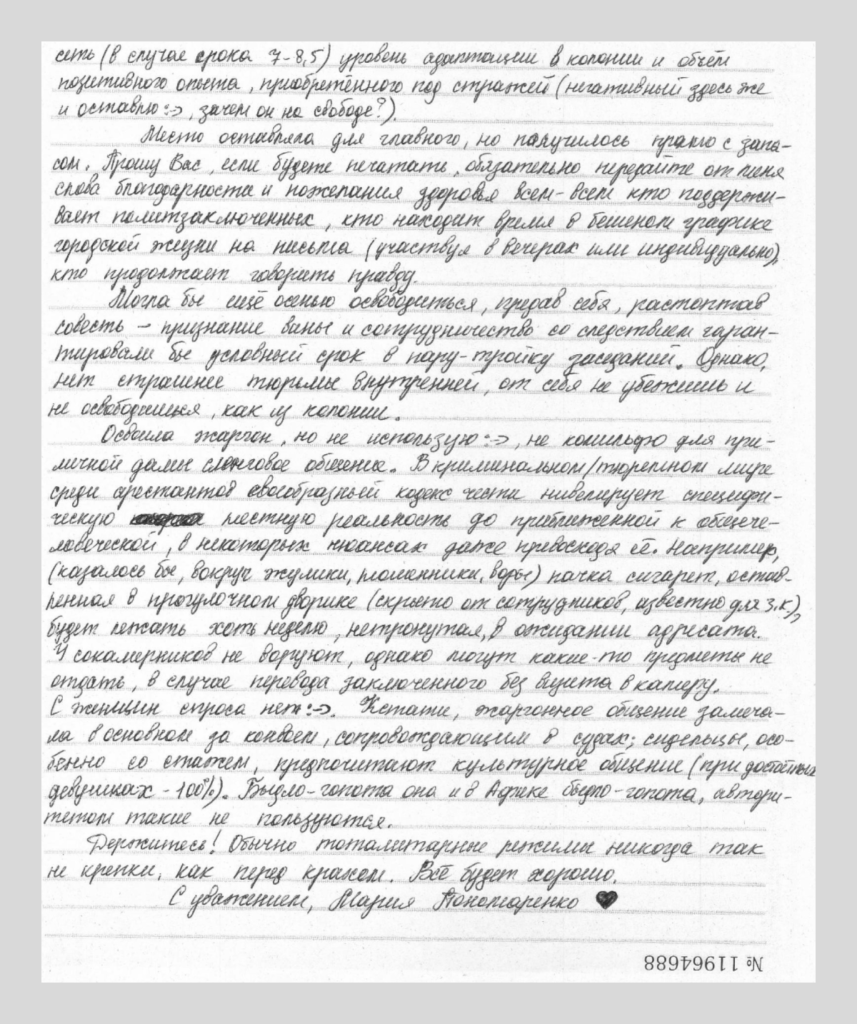 сеть (в случае срока 7-8,5) уровень адаптации в колонии и объём
позитивного опыта, приобретённого под стражей (негативный здесь же
и оставлю :-), зачем он на свободе?).
Место оставляла для главного, но получилось прямо с запа-
сом. Прошу Вас, если будете печатать, обязательно передайте от меня
слова благодарности и пожелания здоровья всем-всем кто поддержи-
вает политзаключенных, кто находит время в бешеном графике
городской жизни на письма (участвуя в вечерах или индивидуально),
кто продолжает говорить правду.
Могла бы ещё осенью освободиться, предав себя, растоптав
совесть – признание вины и сотрудничество со следствием гаран-
тировали бы условный срок в пару-тройку заседаний. Однако,
нет страшнее тюрьмы внутренней, от себя не убежишь и
не освободишься, как из колонии.
Освоила жаргон, но не использую :-), не комильфо для при-
личной дамы сленговое общение. В криминальном/тюремном мире
среди арестантов своеобразный кодекс чести нивелирует специфи-
ческую местную реальность до приближенной к общече-
ловеческой, в некоторых нюансах даже превосходя её. Например,
(казалось бы, вокруг жулики, мошенники, воры) пачка сигарет, остав-
ленная в прогулочном дворике (скрытно от сотрудников, известно для з.к),
будет лежать хоть неделю, нетронутая, в ожидании адресата.
У сокамерников не воруют, однако могут какие-то предметы не
отдать, в случае перевода заключенного без визита в камеру.
С женщин спроса нет :-). Кстати, жаргонное общение замеча-
ла в основном за конвоем, сопровождающим в судах; сидельцы, осо-
бенно со стажем, предпочитают культурное общение (при достойных
девушках - 100%). Быдло-гопота она и в Адыке быдло-гопота, автори-
тетом такие не пользуются.
Держитесь! Обычно тоталитарные режимы никогда так
не крепки, как перед крахом. Всё будет хорошо.
С уважением, Мария Пономаренко ♥
№ 11964688